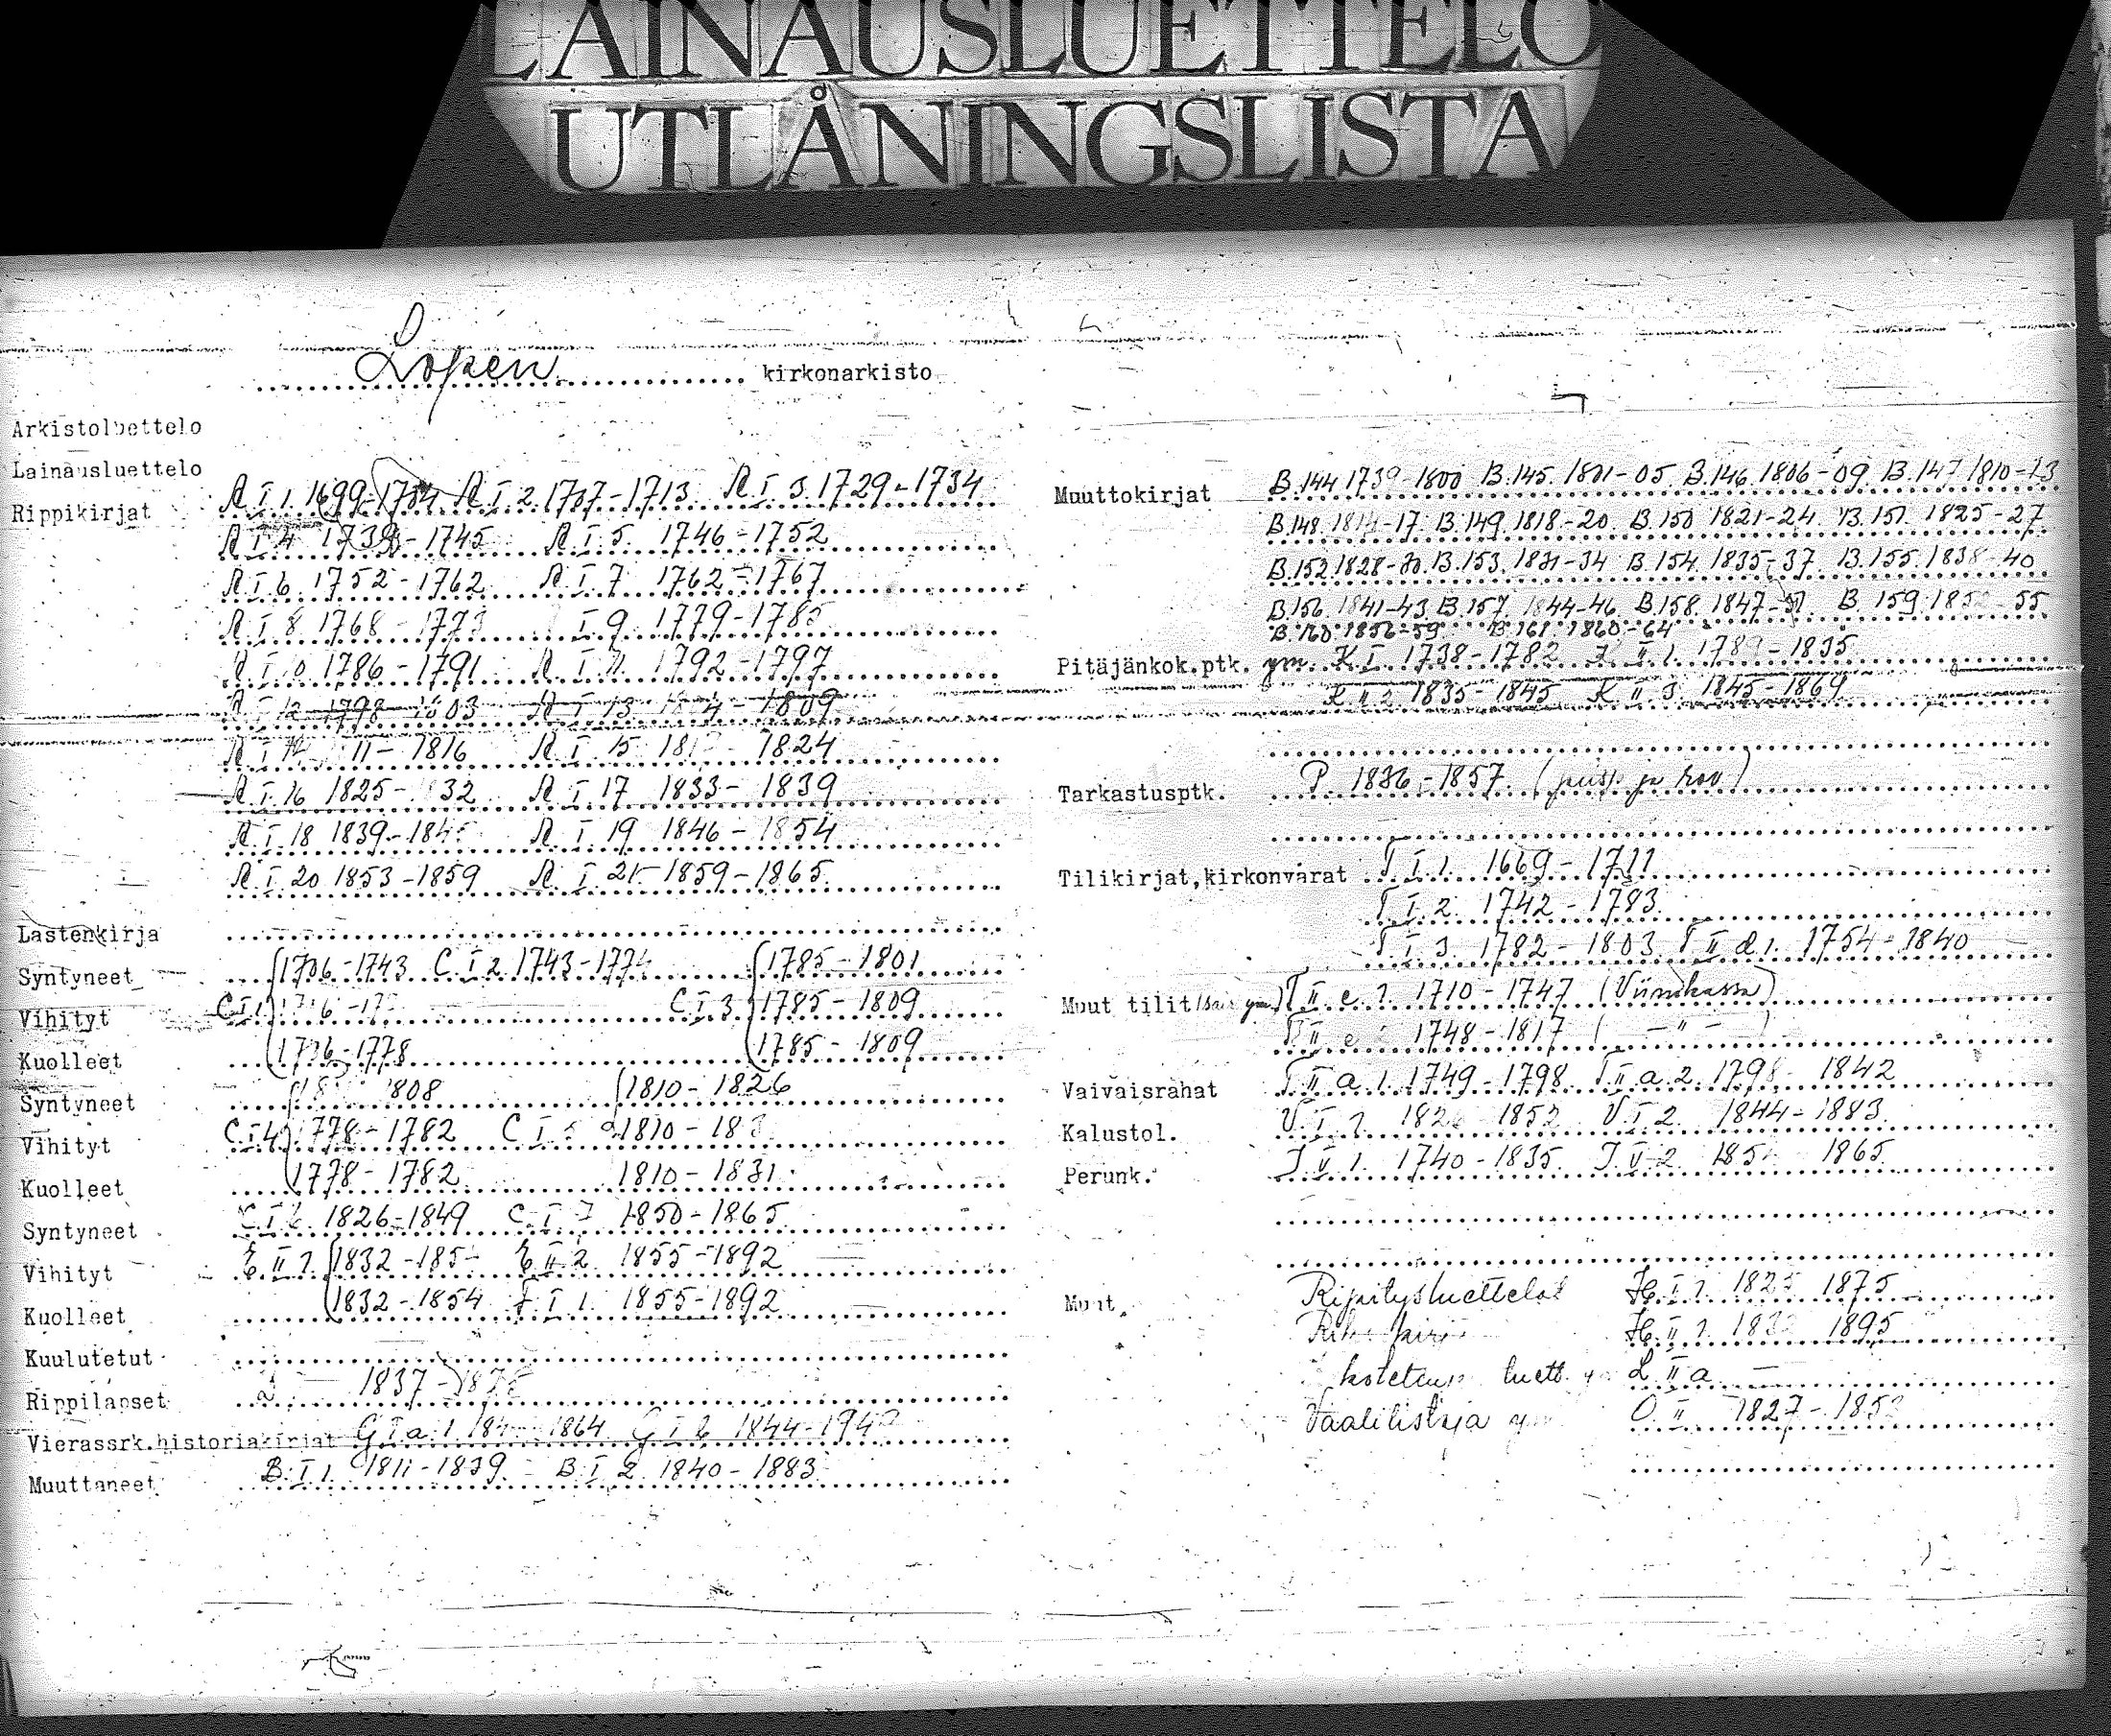 LAINAUSLUETTELO
UTLÅNINGSLISTA
Lopen kirkonarkisto
Arkistoluettelo
Lainausluettelo
Rippikirjat A I 1. 1699-1704 A I 2 1707-1713 A I 3. 1729-1734
A I 4 1739-1745 A I 5. 1746-1752
A I 6. 1752-1762 A I 7 1762-1767
A I 8 1768-1773 I 9. 1779-1785
A I 10 1786-1791 A I 11. 1792-1797
A I 12 1798-1803 A I 13 1804-1809
A I 14 11-1816 A I 15 1824
A I 16 1825-32 A I 17 1833-1839
A I 18 1839-184 A I 19 1846-1854
A I 20 1853-1859 A I 21 1859-1865
Lastenkirja
Syntyneet 1706-1743 C I 2 1743-1774 1785-1801
Vihityt C I 1 C I 3 1785-1809
Kuolleet 1736-1778 1785-1809
Syntyneet 1808 1810-1826
Vihityt C I 4 1778-1782 C I 1810-183
Kuolleet 1778-1782 1810-1831
Syntyneet C I 6 1826-1849 C I 7 1850-1865
Vihityt E II 1. 1832-185 E II 2 1855-1892
Kuolleet 1832-1854 F I 1. 1855-1892
Kuulutetut
Rippilapset 1837-
Vierassrk.historiakirjat G I a 1 184 1864 G I b 1844-194
Muuttaneet B I 1. 1811-1839 B I 2 1840-1883
Muuttokirjat B.144 1739-1800 B.145. 1801-05 B.146 1806-09 B.147 1810-13
B.148 1814-17 B.149. 1818-20. B.150 1821-24. B.151. 1825-27
B.152 1828-30. B.153. 1831-34 B.154. 1835-37. B.155. 1838-40
B.156 1841-43 B.157. 1844-46 B.158. 1847-51 B.159. 1852-55
B.160 1856-59 B.161. 1860-64
Pitäjänkok.ptk. ym. K I. 1738-1782 K II 1. 1789-1835
K II 2 1835-1845 K II 3. 1845-1869
Tarkastusptk. P. 1836-1857 (piisp. ja rov)
Tilikirjat,kirkonvarat T I 1. 1669-1711
T I 2. 1742-1783
T I 3. 1782-1803 T II d 1. 1754-1840
Muut tilit T II e 1. 1710-1747 (Viinikassa)
T II e 1748-1817 ( -"- )
Vaivaisrahat T II a 1. 1749-1798. T II a 2. 1798-1842
Kalustol. V I 1. 1852 V I 2. 1844-1883
Perunk. J V 1. 1740-1835. J V 2 185 1865
Muut. Ripitysluettelot H I 1 1825 1875
H II 1. 183 1895
luett. L II a -
Vaalilistoja O II. 1827-185